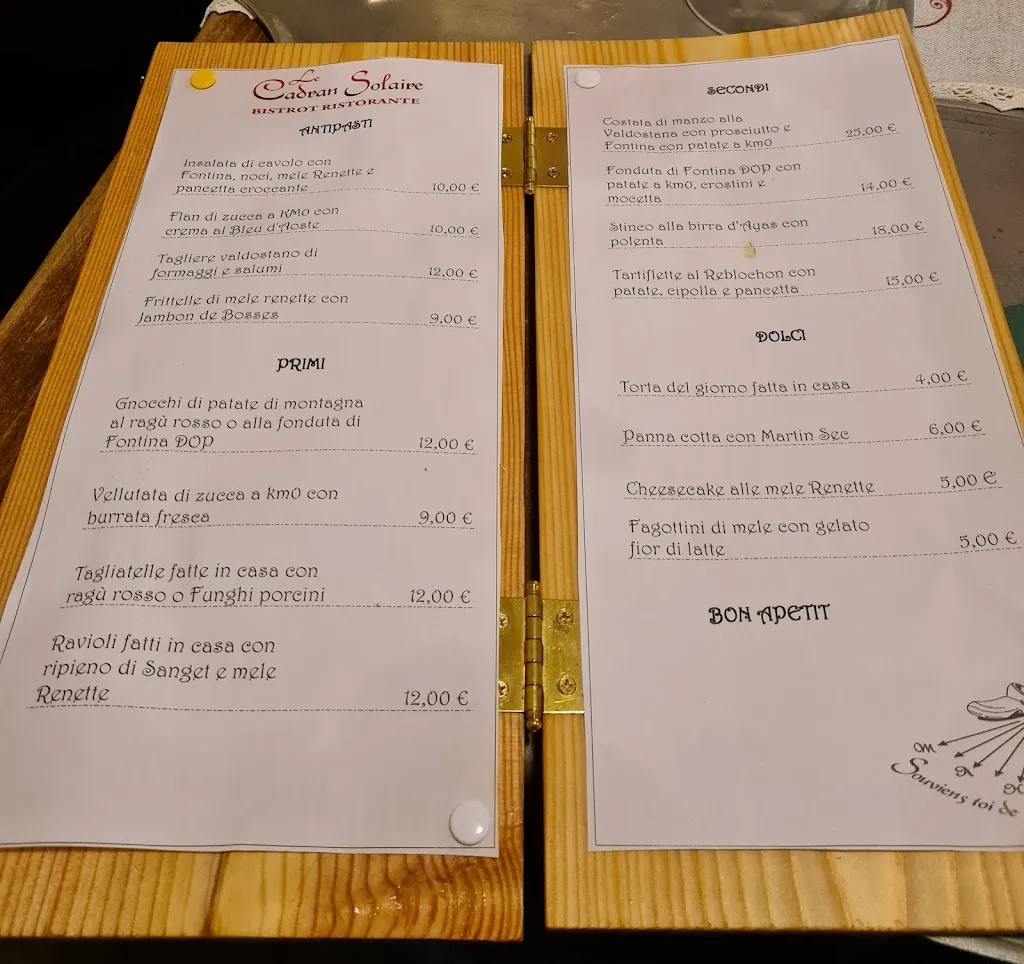 Le
Cadran Solaire
BISTROT RISTORANTE
ANTIPASTI
Insalata di cavolo con
Fontina, noci, mele Renette e
pancetta croccante 10,00 €
Flan di zucca a KM0 con
crema al Bleu d'Aoste 10,00 €
Tagliere valdostano di
formaggi e salumi 12,00 €
Frittelle di mele renette con
Jambon de Bosses 9,00 €
PRIMI
Gnocchi di patate di montagna
al ragù rosso o alla fonduta di
Fontina DOP 12,00 €
Vellutata di zucca a km0 con
burrata fresca 9,00 €
Tagliatelle fatte in casa con
ragù rosso o Funghi porcini 12,00 €
Ravioli fatti in casa con
ripieno di Sanget e mele
Renette 12,00 €
SECONDI
Costata di manzo alla
Valdostana con prosciutto e
Fontina con patate a km0 25,00 €
Fonduta di Fontina DOP con
patate a km0, crostini e
mocetta 14,00 €
Stinco alla birra d'Ayas con
polenta 18,00 €
Tartiflette al Reblochon con
patate, cipolla e pancetta 15,00 €
DOLCI
Torta del giorno fatta in casa 4,00 €
Panna cotta con Martin Sec 6,00 €
Cheesecake alle mele Renette 5,00 €
Fagottini di mele con gelato
fior di latte 5,00 €
BON APETIT
Souviens toi de